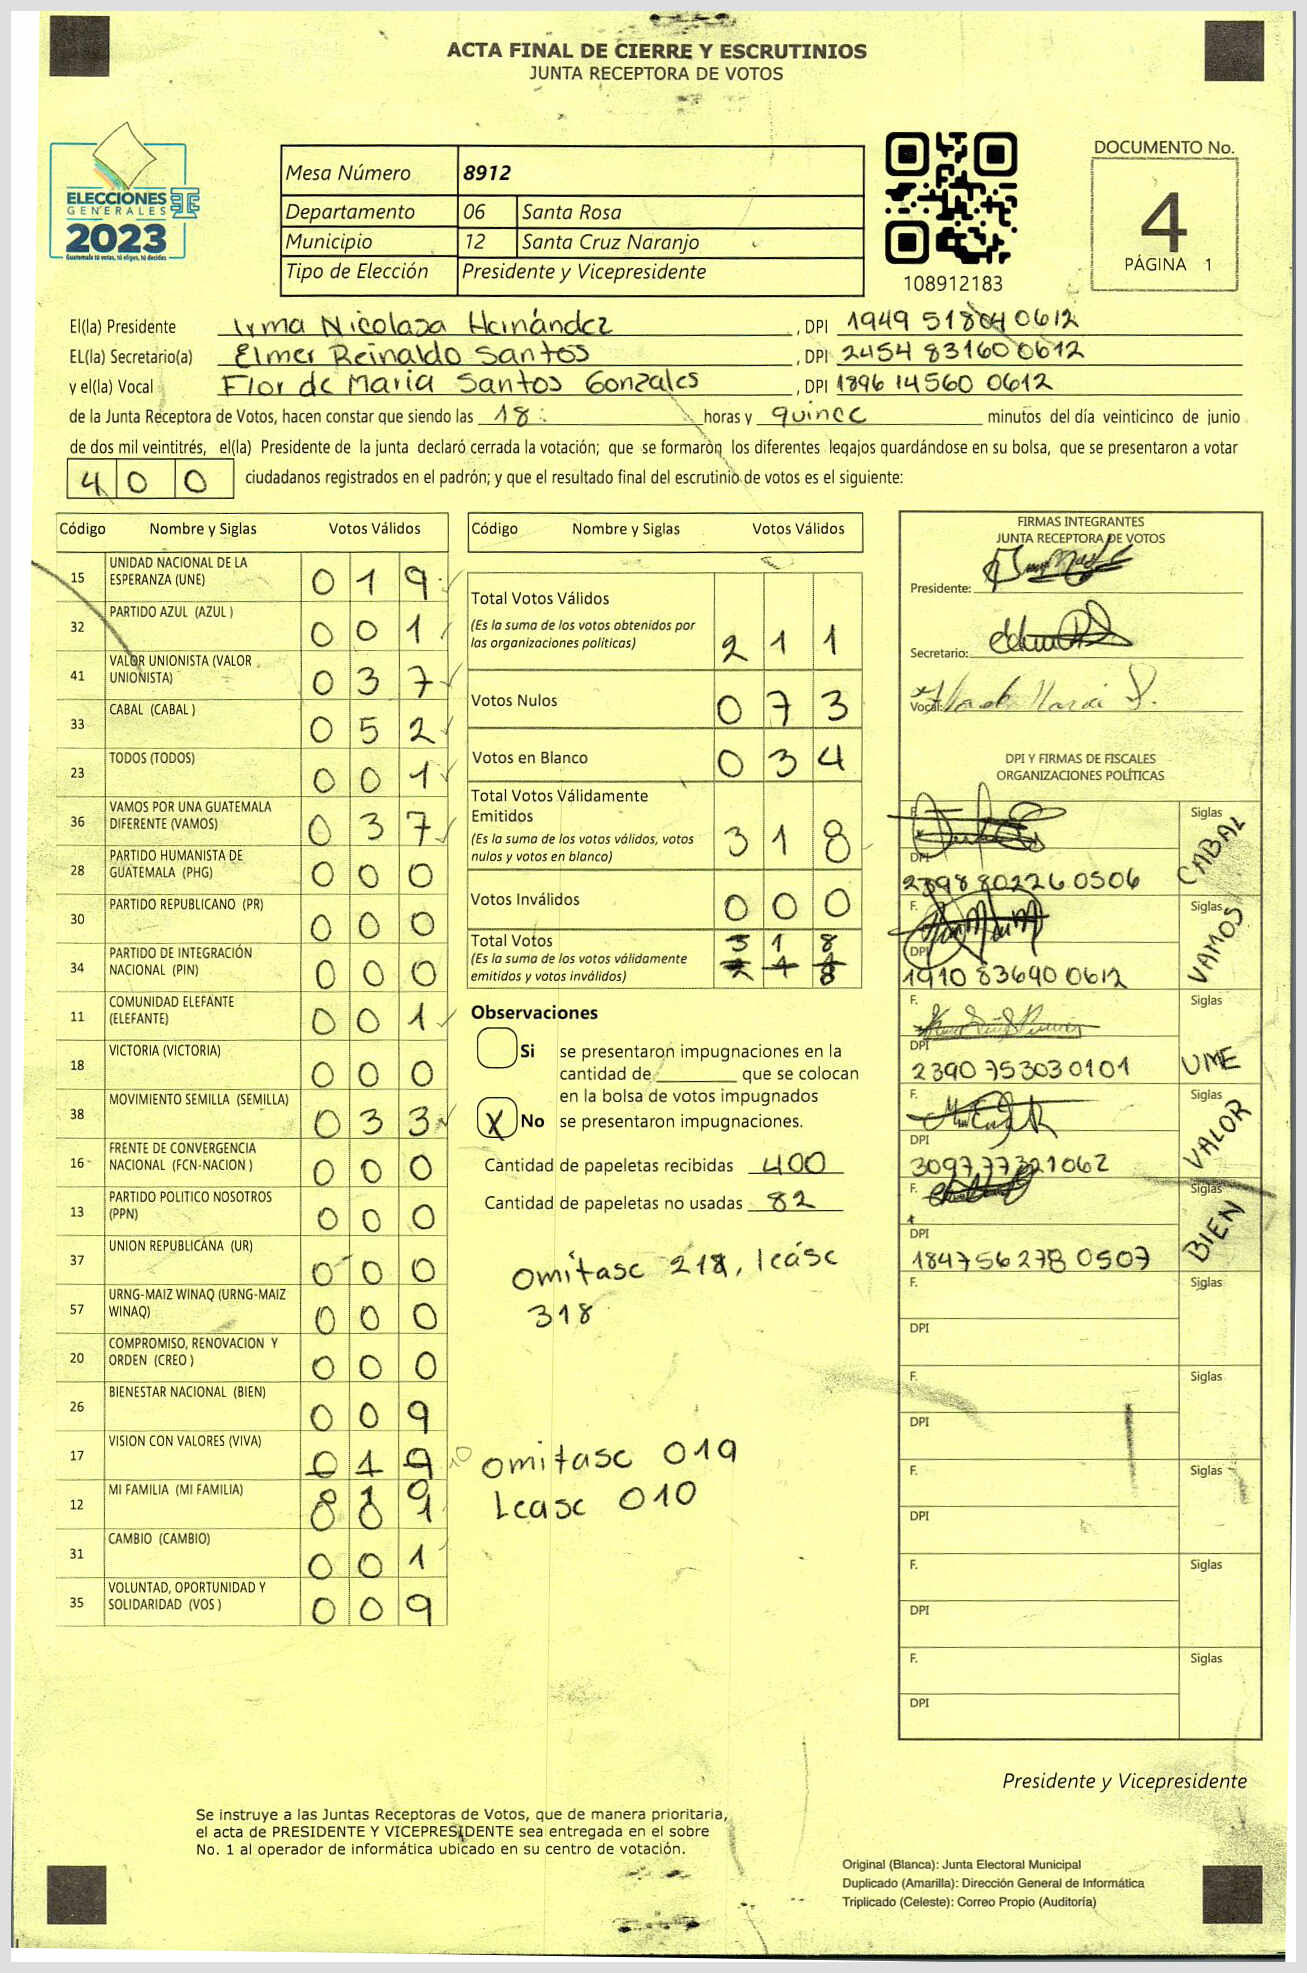 ACTA FINAL DE CIERRE Y ESCRUTINIOS
JUNTA RECEPTORA DE VOTOS
ELECCIONES
GENERALES
2023
Guatemala tú votas, tú eliges, tú decides
Mesa Número 8912
Departamento 06 Santa Rosa
Municipio 12 Santa Cruz Naranjo
Tipo de Elección Presidente y Vicepresidente
108912183
DOCUMENTO No.
4
PÁGINA 1
El(la) Presidente Irma Nicolasa Hernández, DPI 1949 51804 0612
EL(la) Secretario(a) Elmer Reinaldo Santos, DPI 2454 83160 0612
y el(la) Vocal Flor de Maria Santos Gonzales, DPI 1896 14560 0612
de la Junta Receptora de Votos, hacen constar que siendo las 18: horas y quince minutos del día veinticinco de junio
de dos mil veintitrés, el(la) Presidente de la junta declaró cerrada la votación; que se formaron los diferentes legajos guardándose en su bolsa, que se presentaron a votar
400 ciudadanos registrados en el padrón; y que el resultado final del escrutinio de votos es el siguiente:
Código Nombre y Siglas Votos Válidos
15 UNIDAD NACIONAL DE LA ESPERANZA (UNE) 0 1 9
32 PARTIDO AZUL (AZUL ) 0 0 1
41 VALOR UNIONISTA (VALOR UNIONISTA) 0 3 7
33 CABAL (CABAL ) 0 5 2
23 TODOS (TODOS) 0 0 1
36 VAMOS POR UNA GUATEMALA DIFERENTE (VAMOS) 0 3 7
28 PARTIDO HUMANISTA DE GUATEMALA (PHG) 0 0 0
30 PARTIDO REPUBLICANO (PR) 0 0 0
34 PARTIDO DE INTEGRACIÓN NACIONAL (PIN) 0 0 0
11 COMUNIDAD ELEFANTE (ELEFANTE) 0 0 1
18 VICTORIA (VICTORIA) 0 0 0
38 MOVIMIENTO SEMILLA (SEMILLA) 0 3 3
16 FRENTE DE CONVERGENCIA NACIONAL (FCN-NACION ) 0 0 0
13 PARTIDO POLITICO NOSOTROS (PPN) 0 0 0
37 UNION REPUBLICANA (UR) 0 0 0
57 URNG-MAIZ WINAQ (URNG-MAIZ WINAQ) 0 0 0
20 COMPROMISO, RENOVACION Y ORDEN (CREO ) 0 0 0
26 BIENESTAR NACIONAL (BIEN) 0 0 9
17 VISION CON VALORES (VIVA) 0 1 9
12 MI FAMILIA (MI FAMILIA)
31 CAMBIO (CAMBIO) 0 0 1
35 VOLUNTAD, OPORTUNIDAD Y SOLIDARIDAD (VOS ) 0 0 9
Código Nombre y Siglas Votos Válidos
Total Votos Válidos 2 1 1
(Es la suma de los votos obtenidos por
las organizaciones políticas)
Votos Nulos 0 7 3
Votos en Blanco 0 3 4
Total Votos Válidamente
Emitidos 3 1 8
(Es la suma de los votos válidos, votos
nulos y votos en blanco)
Votos Inválidos 0 0 0
Total Votos 3 1 8
(Es la suma de los votos válidamente
emitidos y votos inválidos) 2 1 8
Observaciones
Si se presentaron impugnaciones en la
cantidad de ________ que se colocan
en la bolsa de votos impugnados
X No se presentaron impugnaciones.
Cantidad de papeletas recibidas 400
Cantidad de papeletas no usadas 82
omitase 218, leáse
318
omitase 019
Lease 010
FIRMAS INTEGRANTES
JUNTA RECEPTORA DE VOTOS
Presidente:
Secretario:
Vocal:
DPI Y FIRMAS DE FISCALES
ORGANIZACIONES POLÍTICAS
Siglas CABAL
DPI
2398 80226 0506
F. Siglas VAMOS
DPI
1910 83690 0612
F. Siglas UNE
DPI
2390 75303 0101
F. Siglas VALOR
DPI
3097 77321 062
F. Siglas BIEN
DPI
1847 56278 0507
F. Siglas
DPI
F. Siglas
DPI
F. Siglas
DPI
F. Siglas
DPI
F. Siglas
DPI
Presidente y Vicepresidente
Se instruye a las Juntas Receptoras de Votos, que de manera prioritaria,
el acta de PRESIDENTE Y VICEPRESIDENTE sea entregada en el sobre
No. 1 al operador de informática ubicado en su centro de votación.
Original (Blanca): Junta Electoral Municipal
Duplicado (Amarilla): Dirección General de Informática
Triplicado (Celeste): Correo Propio (Auditoría)